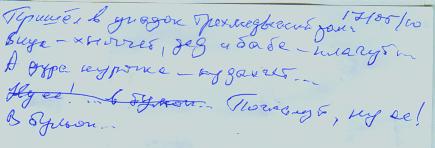 Пришёл в упадок Трёхмедвежий дом 17/05/10
Внук – хнычет, дед и баба – плачут...
А дура курочка – кудахчет...
Ну её! ... в бульон... Пожалуй, ну её!
В бульон...